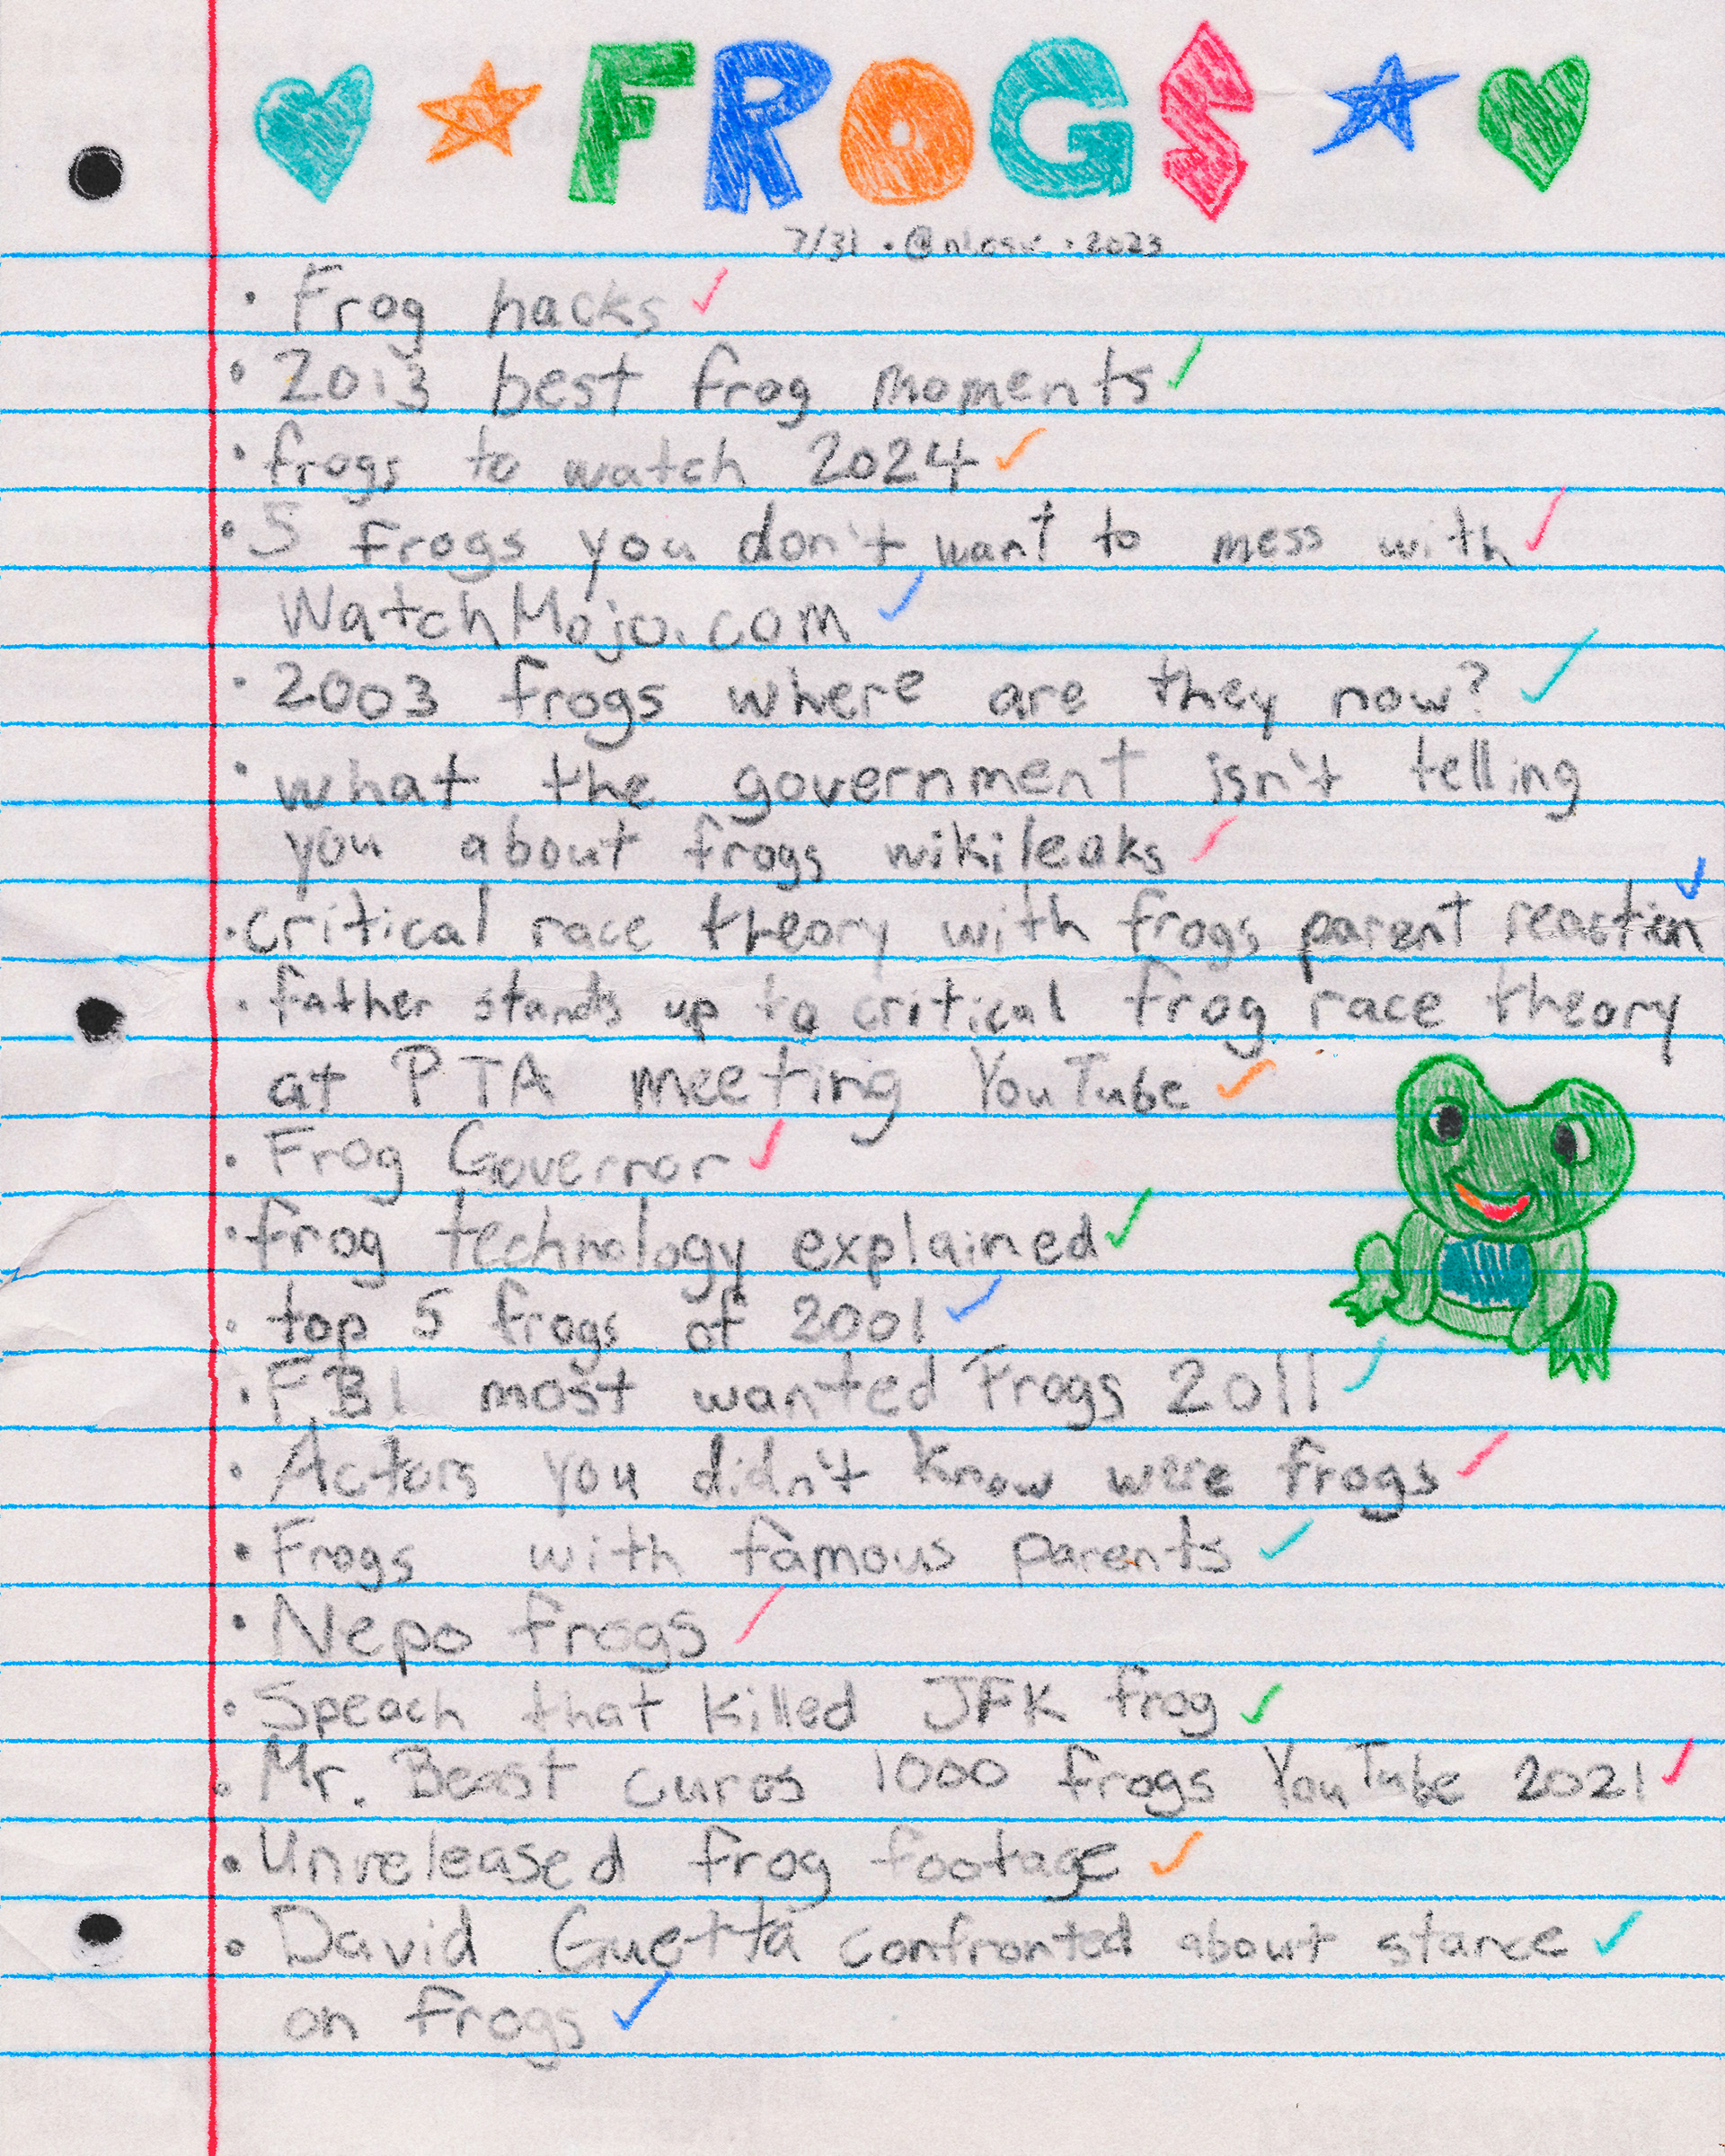 FROGS
7/31 • @nlosv • 2023
• Frog hacks
• 2013 best frog moments
• frogs to watch 2024
• 5 frogs you don't want to mess with
WatchMojo.com
• 2003 frogs where are they now?
• what the government isn't telling
you about frogs wikileaks
• critical race theory with frogs parent reaction
• father stands up to critical frog race theory
at PTA meeting YouTube
• Frog Governor
• frog technology explained
• top 5 frogs of 2001
• FBI most wanted Frogs 2011
• Actors you didn't know were frogs
• Frogs with famous parents
• Nepo frogs
• Speach that killed JFK frog
• Mr. Beast cures 1000 frogs YouTube 2021
• Unreleased frog footage
• David Guetta confronted about stance
on frogs